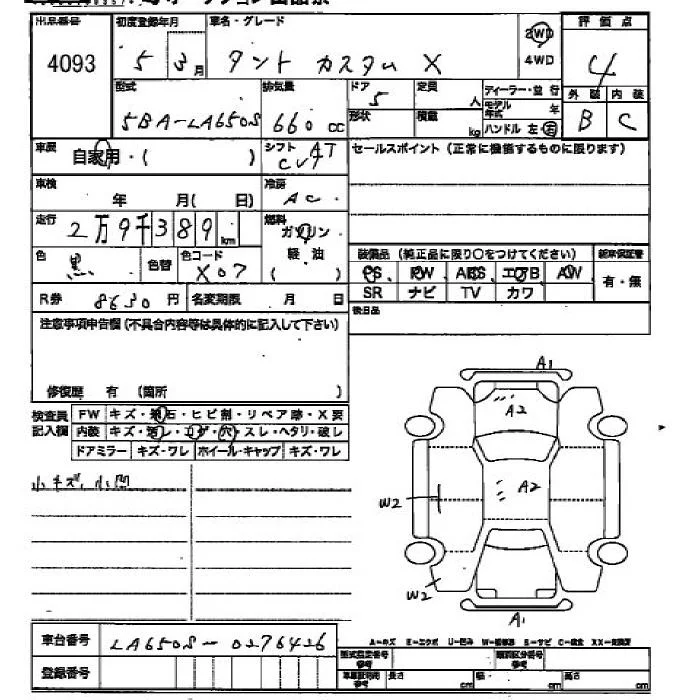 出品番号 初度登録年月 車名・グレード 2WD 評価点
4093 5 3月 タント カスタム X 4WD 4
型式 排気量 ドア 5 定員 人 ディーラー・並行 外装 内装
5BA-LA650S 660cc 形状 積載 kg モデル年式 年 B C
ハンドル 左 右
車歴 自家用・( ) シフト CVAT セールスポイント(正常に機能するものに限ります)
車検 年 月( 日) 冷房 AC
走行 2万9千389km 燃料 ガソリン
軽油
( )
色 黒 色替 色コード X07 装備品(純正品に限り〇をつけてください) 新車保証書
PS PW ABS エアB AW 有・無
SR ナビ TV カワ
R券 8630円 名変期限 月 日 後日品
注意事項申告欄(不具合内容等は具体的に記入して下さい)
修復歴 有 (箇所 )
検査員記入欄 FW キズ・飛石・ヒビ割・リペア跡・X要
内装 キズ・汚レ・コゲ・穴・スレ・ヘタリ・破レ
ドアミラー キズ・ワレ ホイール・キャップ キズ・ワレ
小キズ、小凹
A1
A2
A2
W2
W2
A1
A-キズ E-エクボ U-凹み W-補修跡 S-サビ C-腐食 XX-交換済
車台番号 LA650S-0276426
型式指定番号 参考 類別区分番号 参考
登録番号 長さ cm 幅 cm 高さ cm